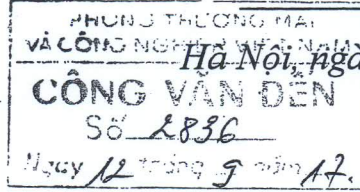 PHÒNG THƯƠNG MẠI
VÀ CÔNG NGHIỆP VIỆT NAM
Hà Nội, ngà
CÔNG VĂN ĐẾN
Số 2836
Ngày 12 tháng 9 năm 17.